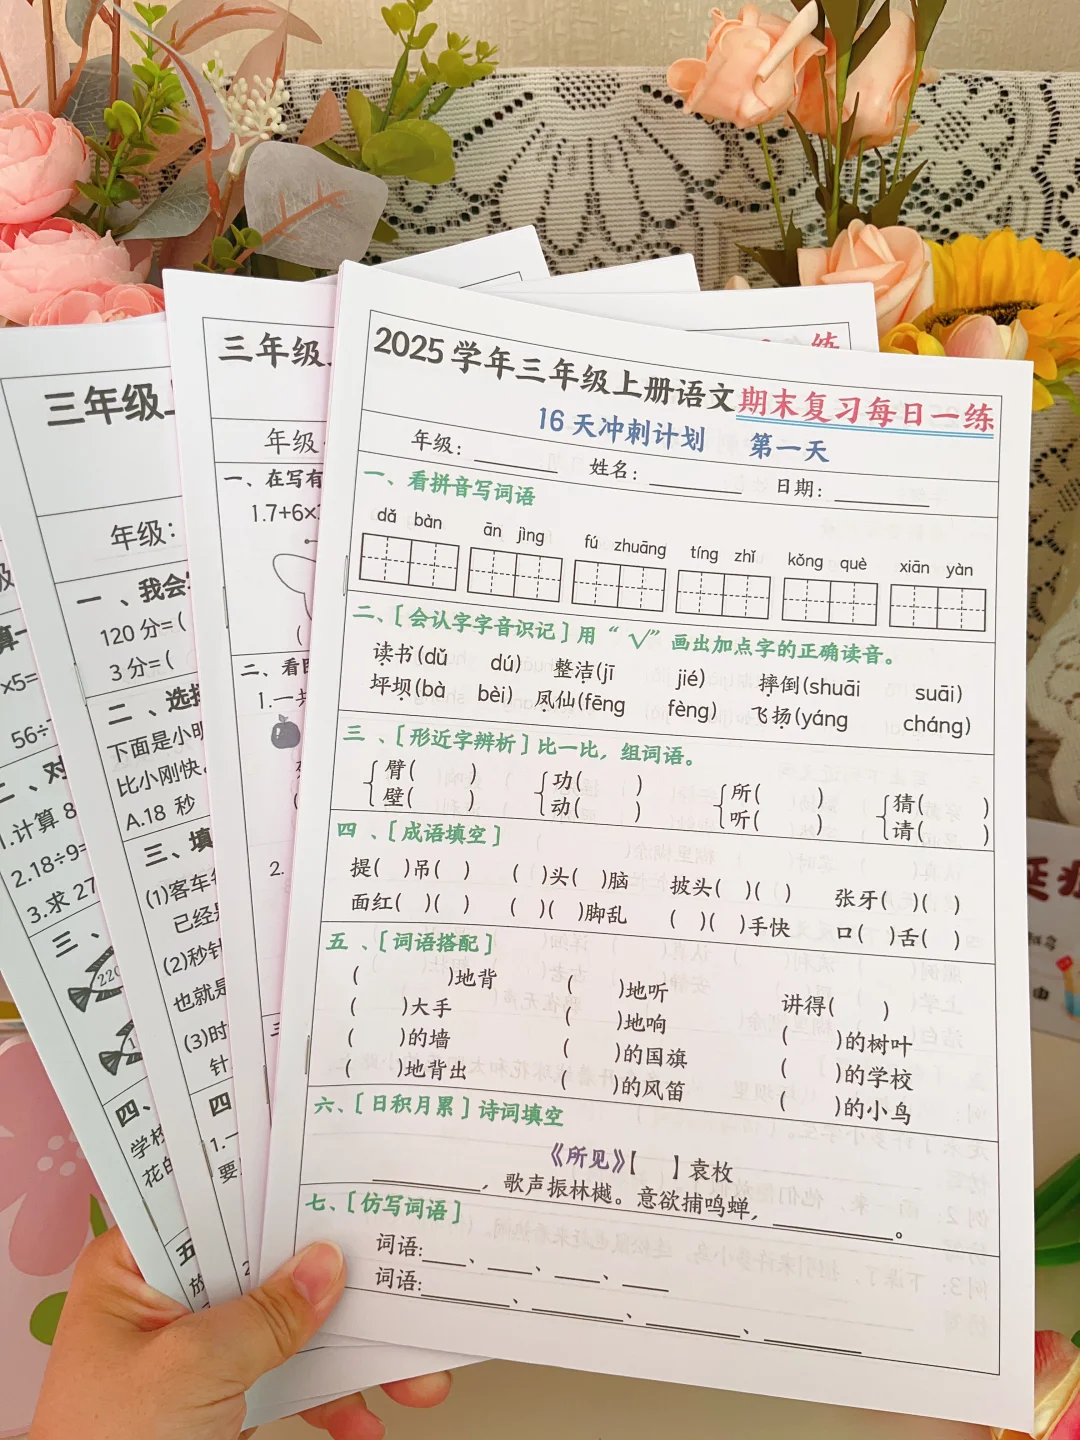 2025学年三年级上册语文期末复习每日一练
16天冲刺计划 第一天
年级：______ 姓名：______ 日期：______
一、看拼音写词语
dǎ bàn ān jìng fú zhuāng tíng zhǐ kǒng què xiān yàn
二、[会认字字音识记]用“√”画出加点字的正确读音。
读书(dǔ dú) 整洁(jī jié) 摔倒(shuāi suāi)
坪坝(bà bèi) 凤仙(fēng fèng) 飞扬(yáng cháng)
三、[形近字辨析]比一比，组词语。
臂( ) 功( ) 所( ) 猜( )
壁( ) 动( ) 听( ) 请( )
四、[成语填空]
提( )吊( ) ( )头( )脑 披头( )( ) 张牙( )( )
面红( )( ) ( )( )脚乱 ( )( )手快 口( )舌( )
五、[词语搭配]
( )地背 ( )地听 讲得( )
( )大手 ( )地响 ( )的树叶
( )的墙 ( )的国旗 ( )的学校
( )地背出 ( )的风笛 ( )的小鸟
六、[日积月累]诗词填空
《所见》【 】袁枚
______，歌声振林樾。意欲捕鸣蝉，______。
七、[仿写词语]
词语：____、____、____、____
词语：____、____、____、____
练
三年级上
年级
一、在写有
1.7+6×
(
二、看图
1.一共
(
2.
三
四
1.一
要
2
三年级上
年级：
一、我会
120分=(
3分=(
二、选择
下面是小明
比小刚快。
A.18 秒
三、填
(1)客车
已经
(2)秒针
也就是
(3)时
针
四、
学校
花的
五
放
算一
×5=
56÷
二、对
1.计算 8
2.18÷9=
3.求 27
三、
220